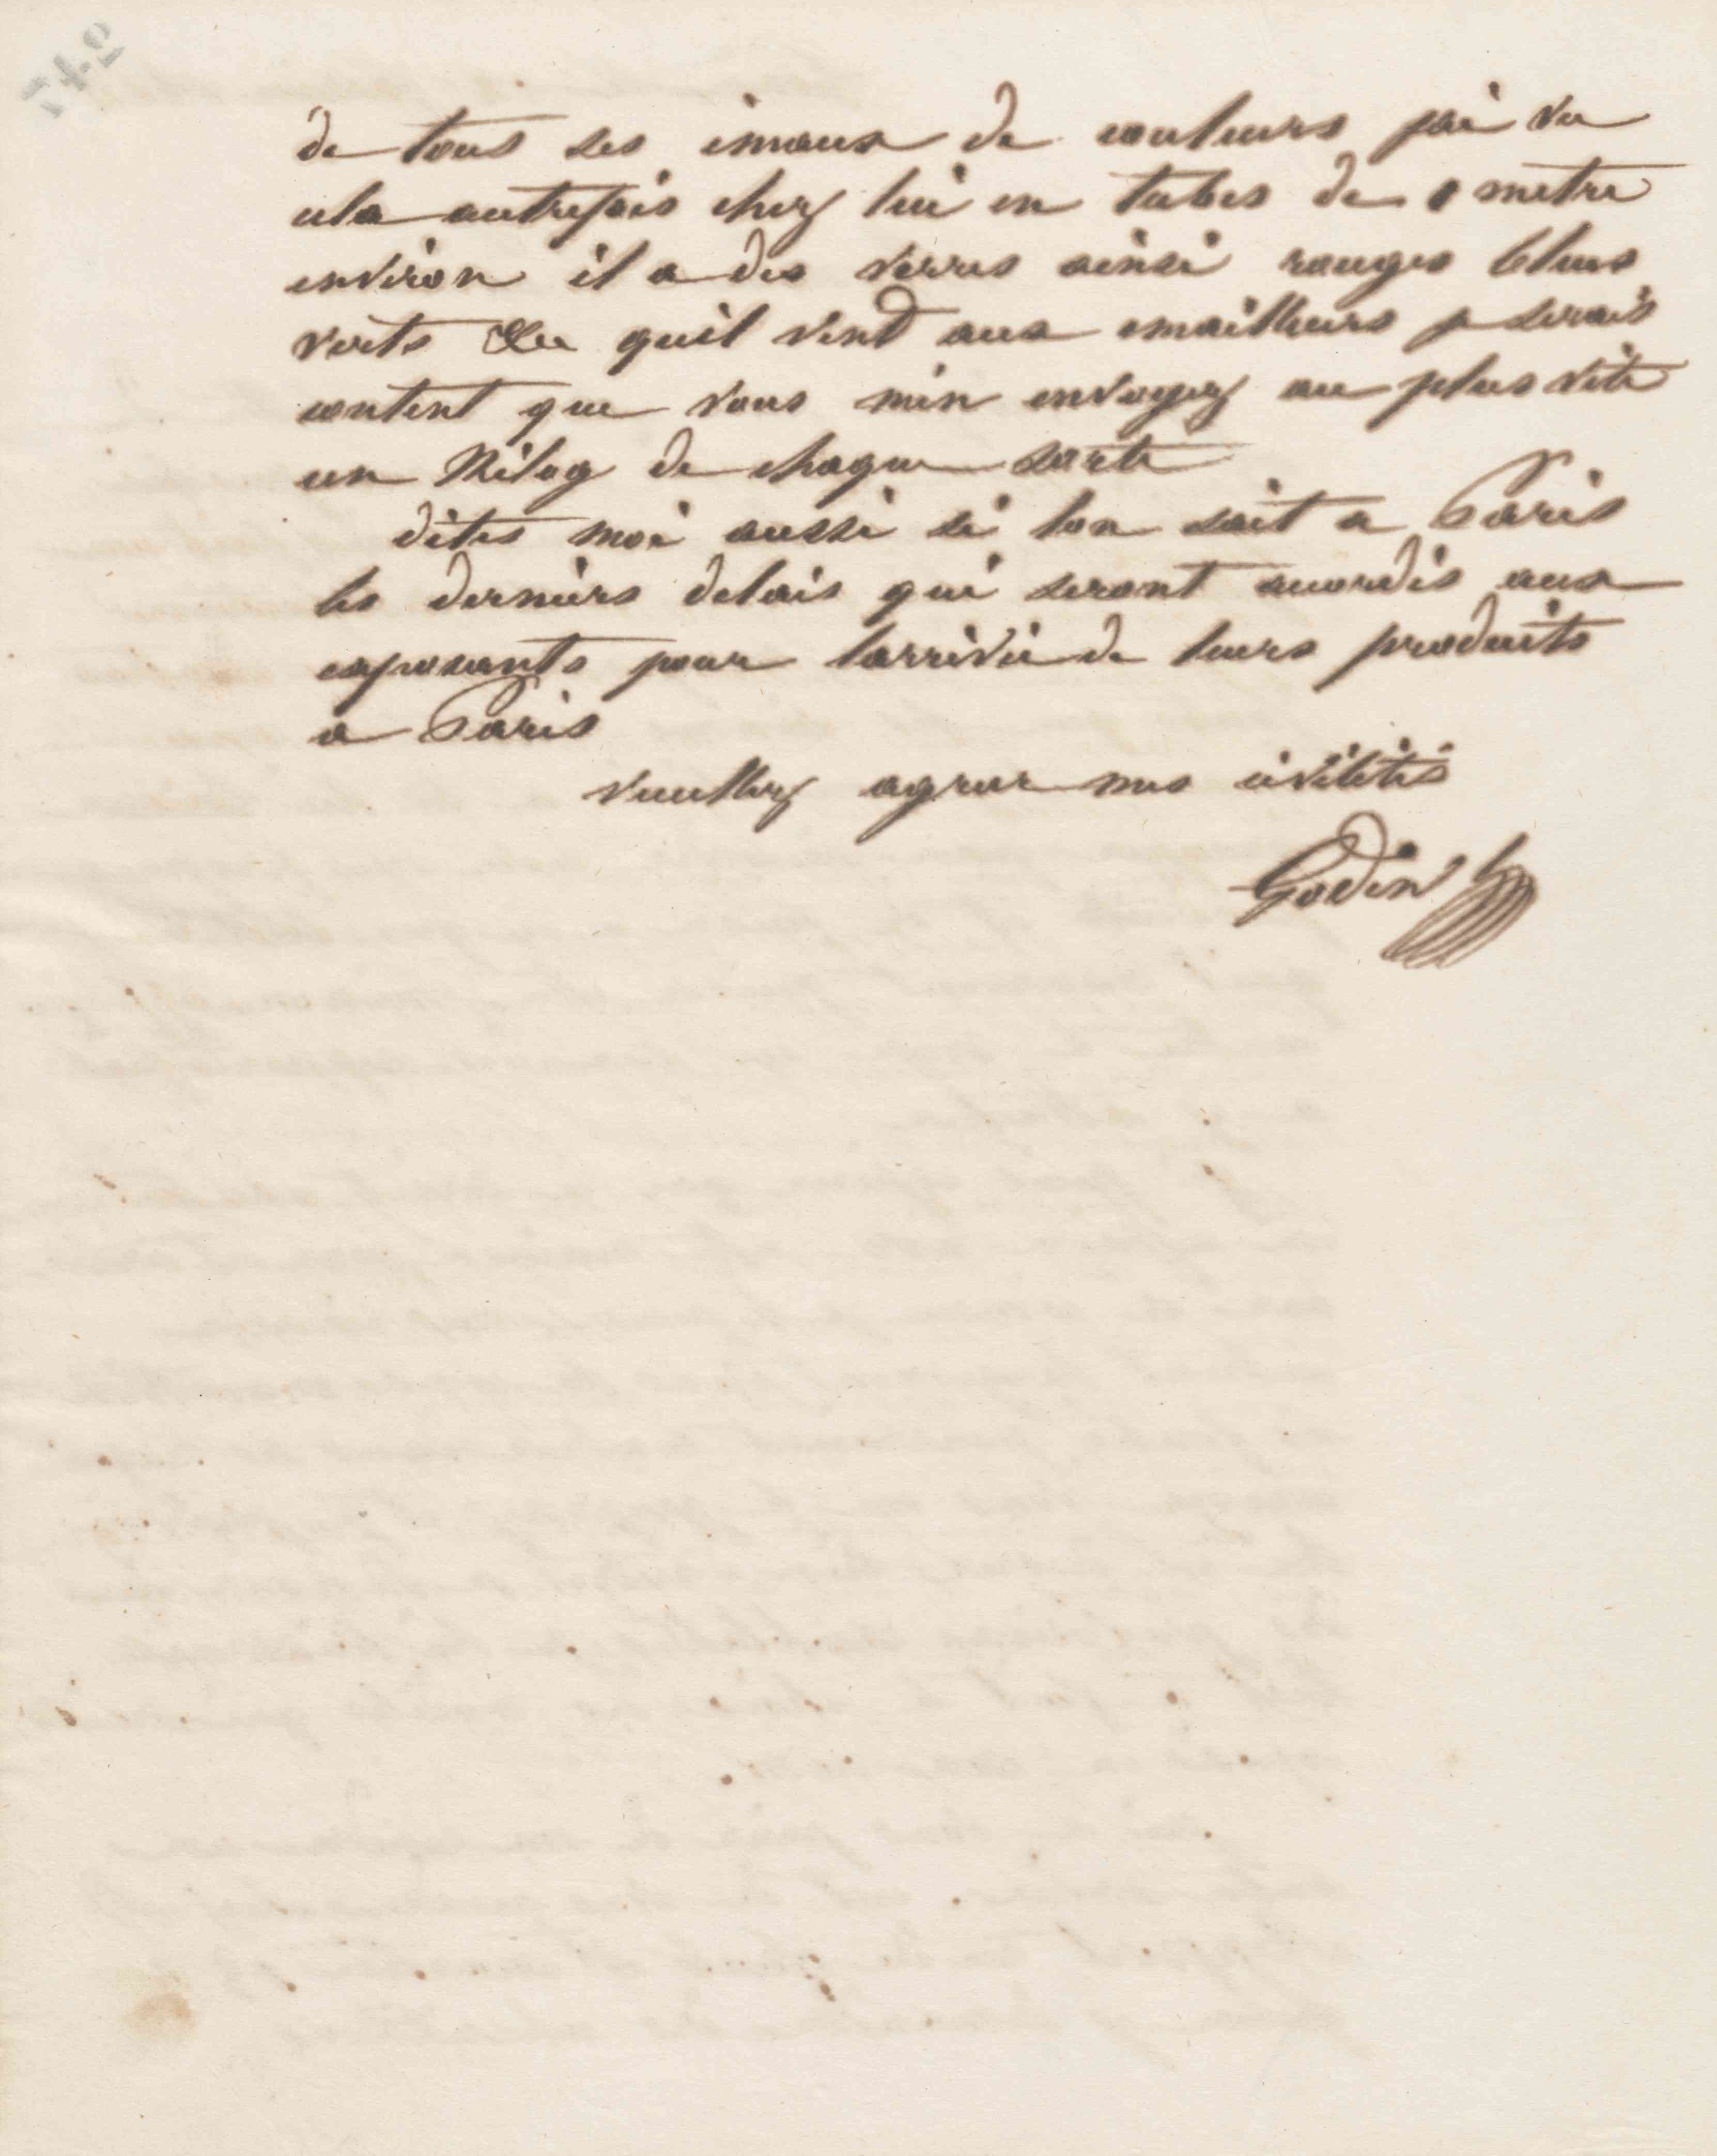 742
de tous ses emaux de couleurs jai vu
cela autrefois chez lui en tubes de 1 metre
environ il a des verres ainsi rouges bleus
verts &c quil vend aux emailleurs je serais
content que vous men envoyez au plus vite
un Kilog de chaque sorte
dites moi aussi si lon sait a Paris
les derniers delais qui seront accordés aux
exposants pour larrivée de leurs produits
a Paris
veuillez agreer mes civilités
Godin